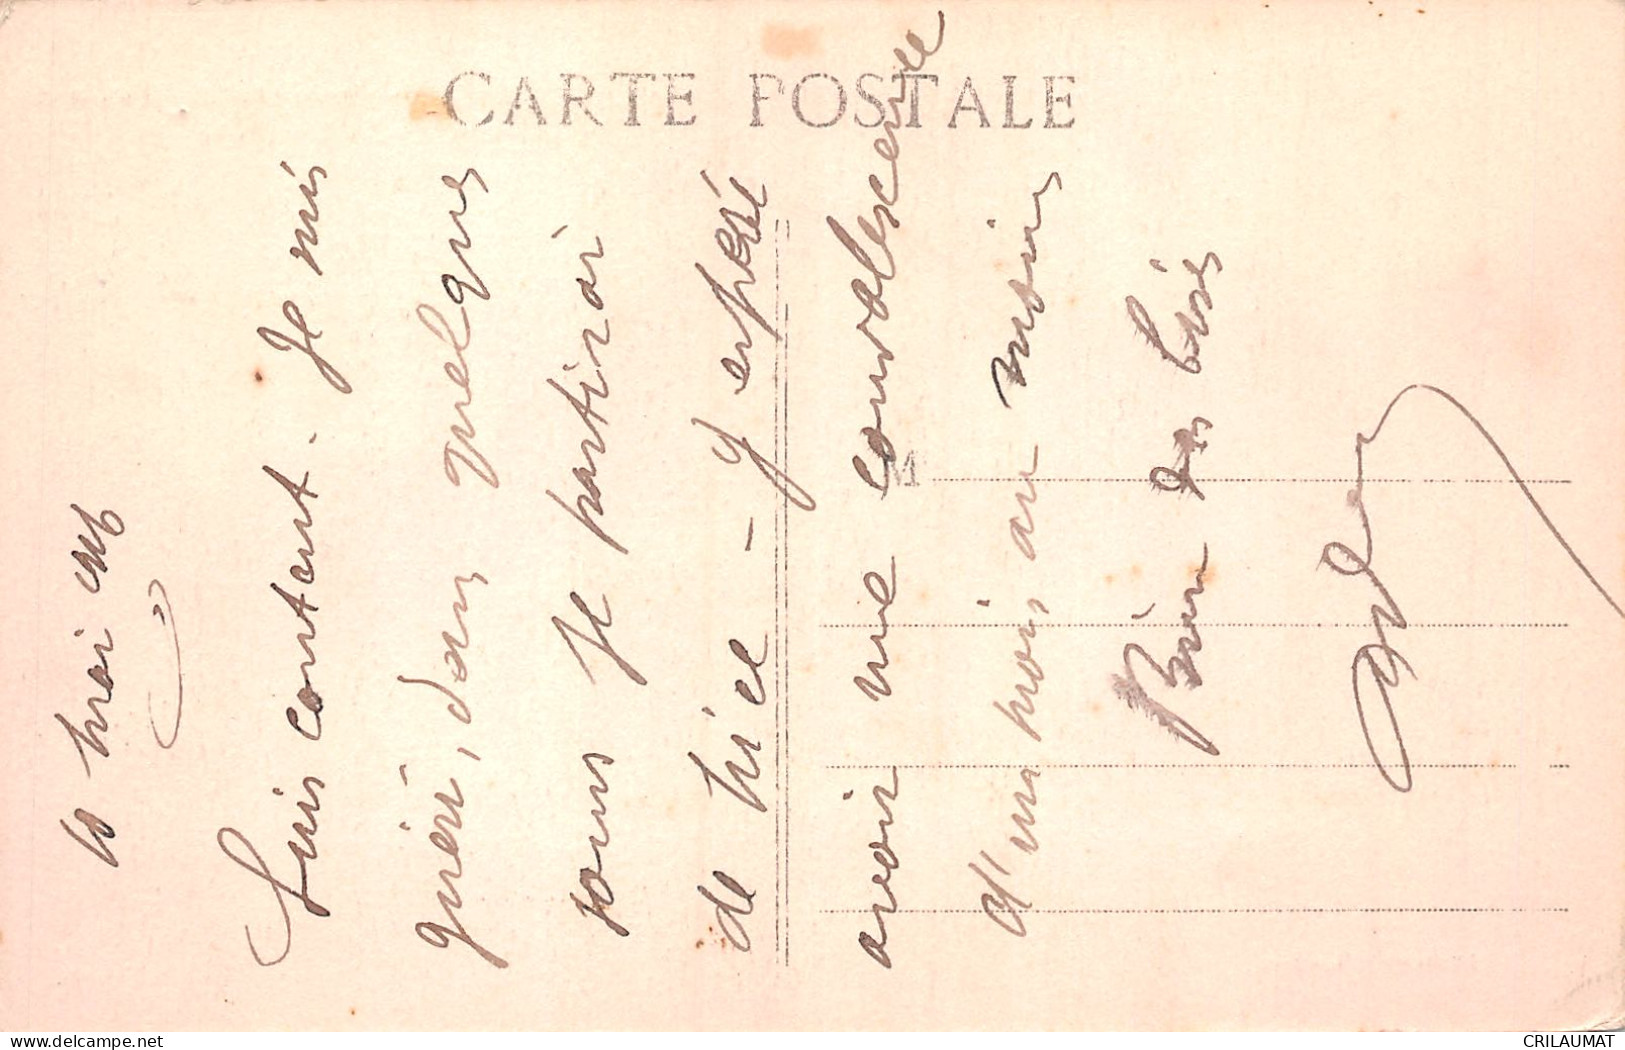 CARTE POSTALE
M
10 mai
Suis content. Je suis
guéri, dans quelques
jours je partirai
de Nice - J'espère
avoir une convalescence
d'un mois au moins
Bien des bises
delcampe.net
CRILAUMAT